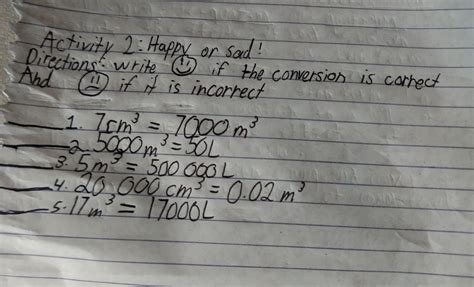 Activity 2: Happy or sad!
Directions: write ☹ if the conversion is correct
And ☹ if it is incorrect
1. 7cm³ = 7000 m³
2. 5000m³ = 50L
3. 5m³ = 500 000L
4. 20 000 cm³ = 0.02 m³
5. 17m³ = 17000L